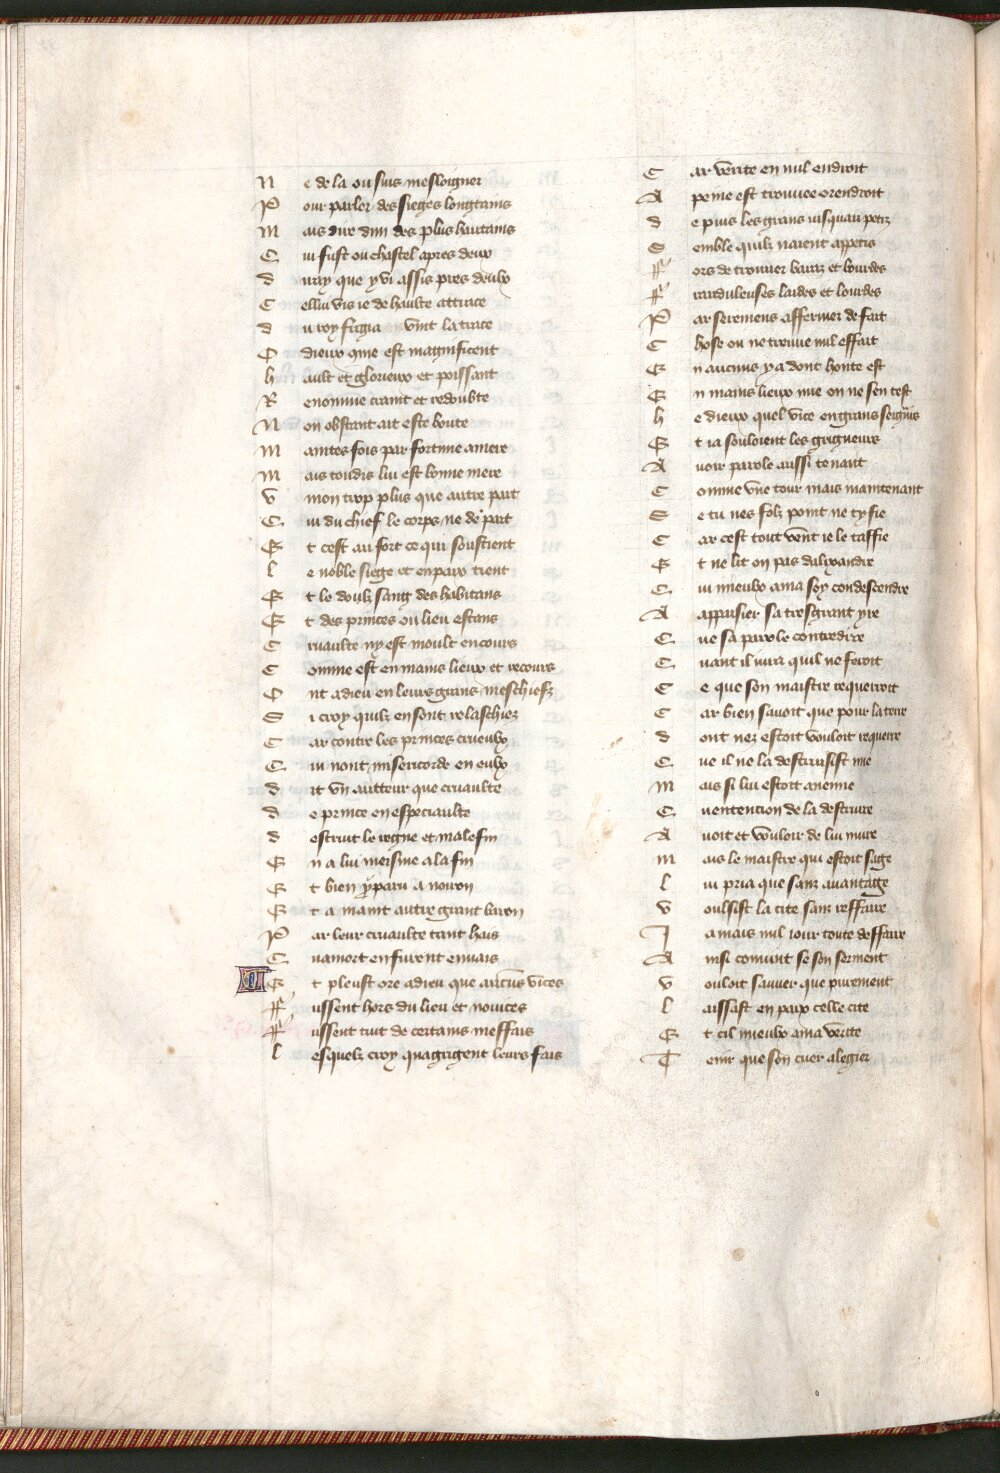 Ne de la ou suis mesloigner
Pour parler des sieges longtains
Mais dire dun des plus haultains
Cui fust ou chastel apres deux
Vray que y vi assis pres deulx
Cellui vis ie de haulte attrace
Du roy frigia vint la trace
O dieux qme est magnificent
Hault et glorieux et poissant
Renomme craint et redoubte
Non obstant ait este boute
Maintes fois par fortune amere
Mais toudis lui est bonne mere
Vmon trop plus que autre part
Cui du chief le corps ne depart
Et cest au fort ce qui soustient
Le noble siege et en paix tient
Et le doulz sang des habitans
Et des princes ou lieu estans
Cruaulte ny est moult en cours
Comme est en mains lieux et recours
Ont a dieu en leurs grans meschiefz
Si croy quilz en sont relaschiez
Car contre les princes crueulx
Cui nont misericorde en eulx
Dit vn autteur que cruaulte
De prince en especiaulte
Destruit le regne et male fin
En a lui meisme a la fin
Et bien y paru a noiron
Et a maint autre grant baron
Par leur cruaulte tant hais
Cua mort en furent enuais
Et pleust ore a dieu que aucuns vices
Fussent hors du lieu et nouices
Fussent tuit de certains meffais
Lesquelz croy quagrigent leurs fais
Car verite en nul endroit
A peine est trouuee orendroit
De puis les grans iusquau petiz
Semble quilz naient appetis
Fors de trouuer baraz et bourdes
Frauduleuses laides et lourdes
Par seremens affermer de fait
Chose ou ne treuue nul effait
En aucuns y a dont honte est
En mains lieux mie on ne sen test
He dieux quel vice en grans seigurs
Et ia souloient les grigneurs
Auoir parole aussi tenant
Comme vne tour mais maintenant
Se tu nes folz point ne ty fie
Car cest tout vent ie le taffie
Et ne lit on pas dalixandre
Cui mieulx ama soy condescendre
A appaisier sa tresgrant yre
Cue sa parole contredire
Cuant il iura quil ne feroit
Ce que son maistre requerroit
Car bien sauoit que pour la terre
Dont nez estoit vouloit requerre
Cue il ne la destruisist mie
Mais si lui estoit anemie
Cuentencion de la destruire
Auoit et vouloir de lui nuire
Mais le maistre qui estoit sage
Lui pria que sanz auantage
Voulsist la cite sanz reffaire
Jamais nul iour toute deffaire
Ainsi comunt se son serment
Vouloit sauuer que purement
Laissast en paix celle cite
Et cil mieulx ama verite
Tenir que son cuer alegier